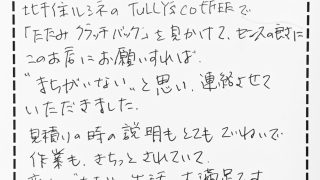 北千住ルミネの TULLY'S COFFEE で
「たたみ クラッチバック」を見かけて、センスの良さに
このお店にお願いすれば、
"まちがいない"と思い、連絡させて
いただきました。
見積りの時の説明もとても ていねいで
作業も、きちっとされていて、